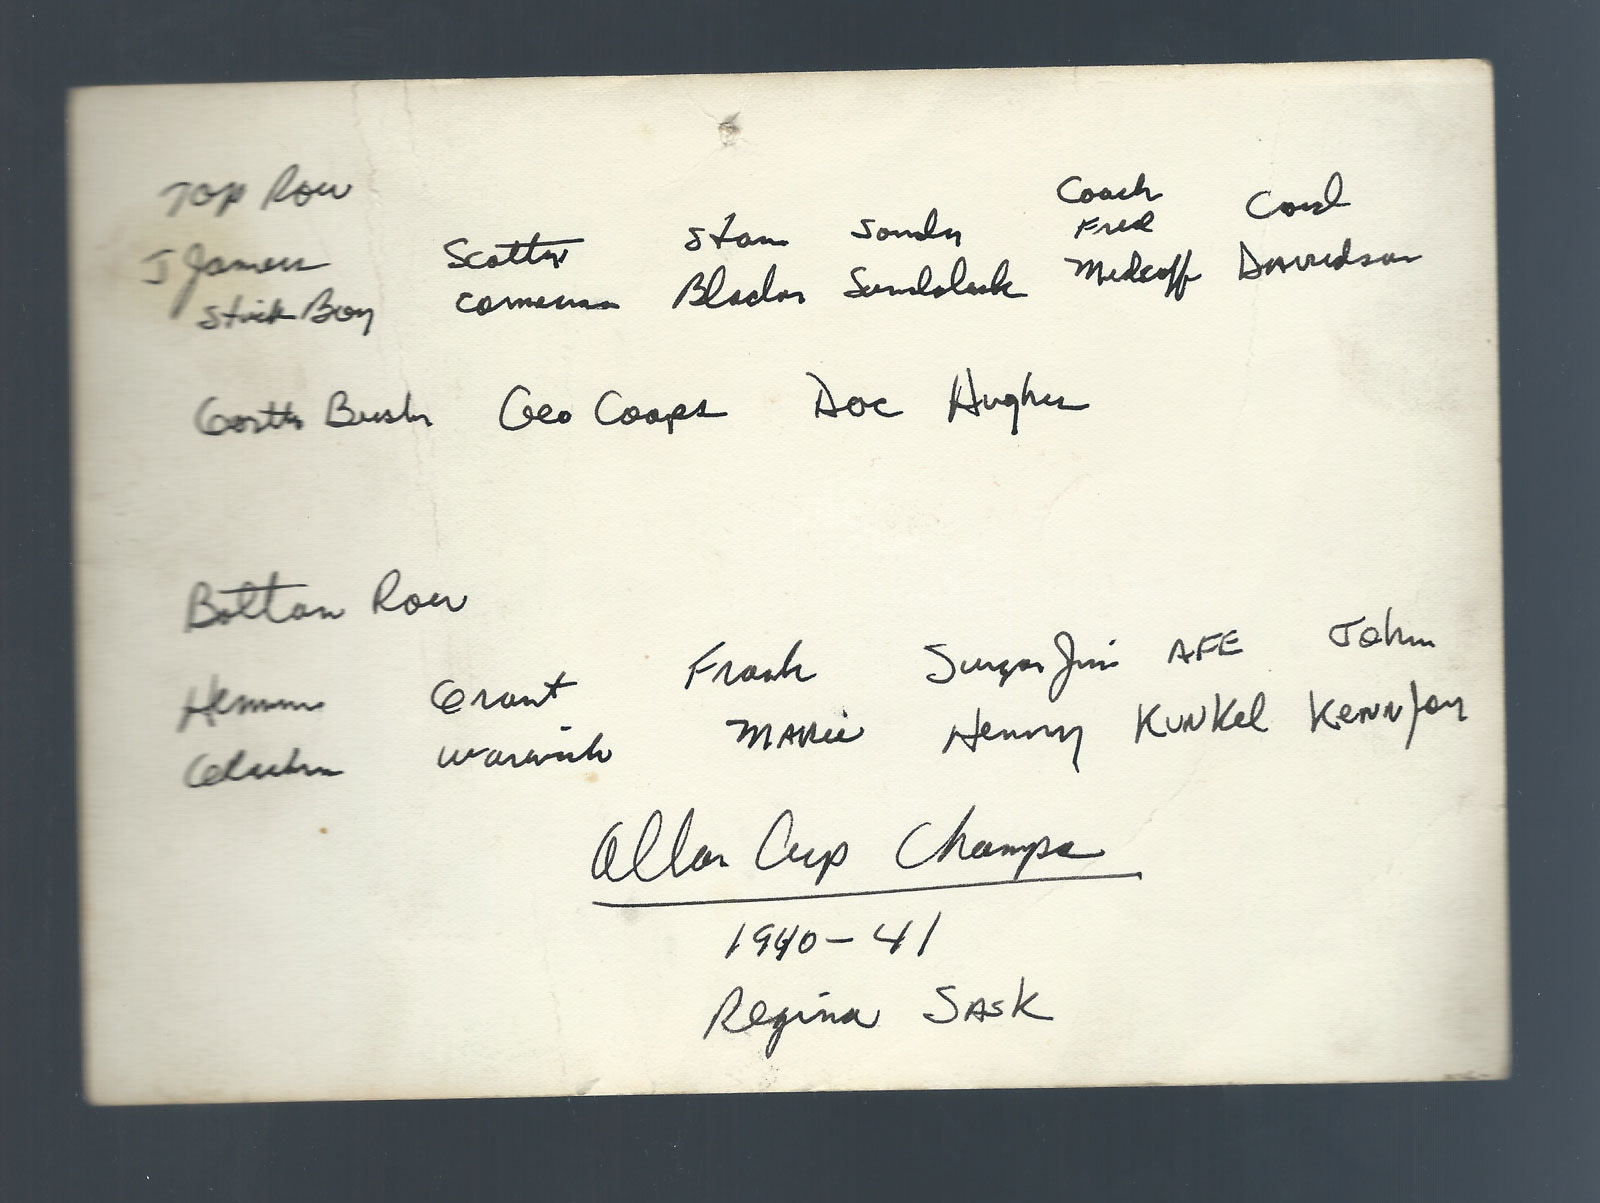 Top Row
J James Scotty Stan Sandy Coach Fred Cord
Stick Boy Cameron Blador Sundalask Medcoff Davidson
Garth Bush Geo Coops Doc Hughes
Bottom Row
Grant Frank Sugar Jim AFE John
Warwick Mario Henry Kunkel
Allan Cup Champs
1940-41
Regina Sask